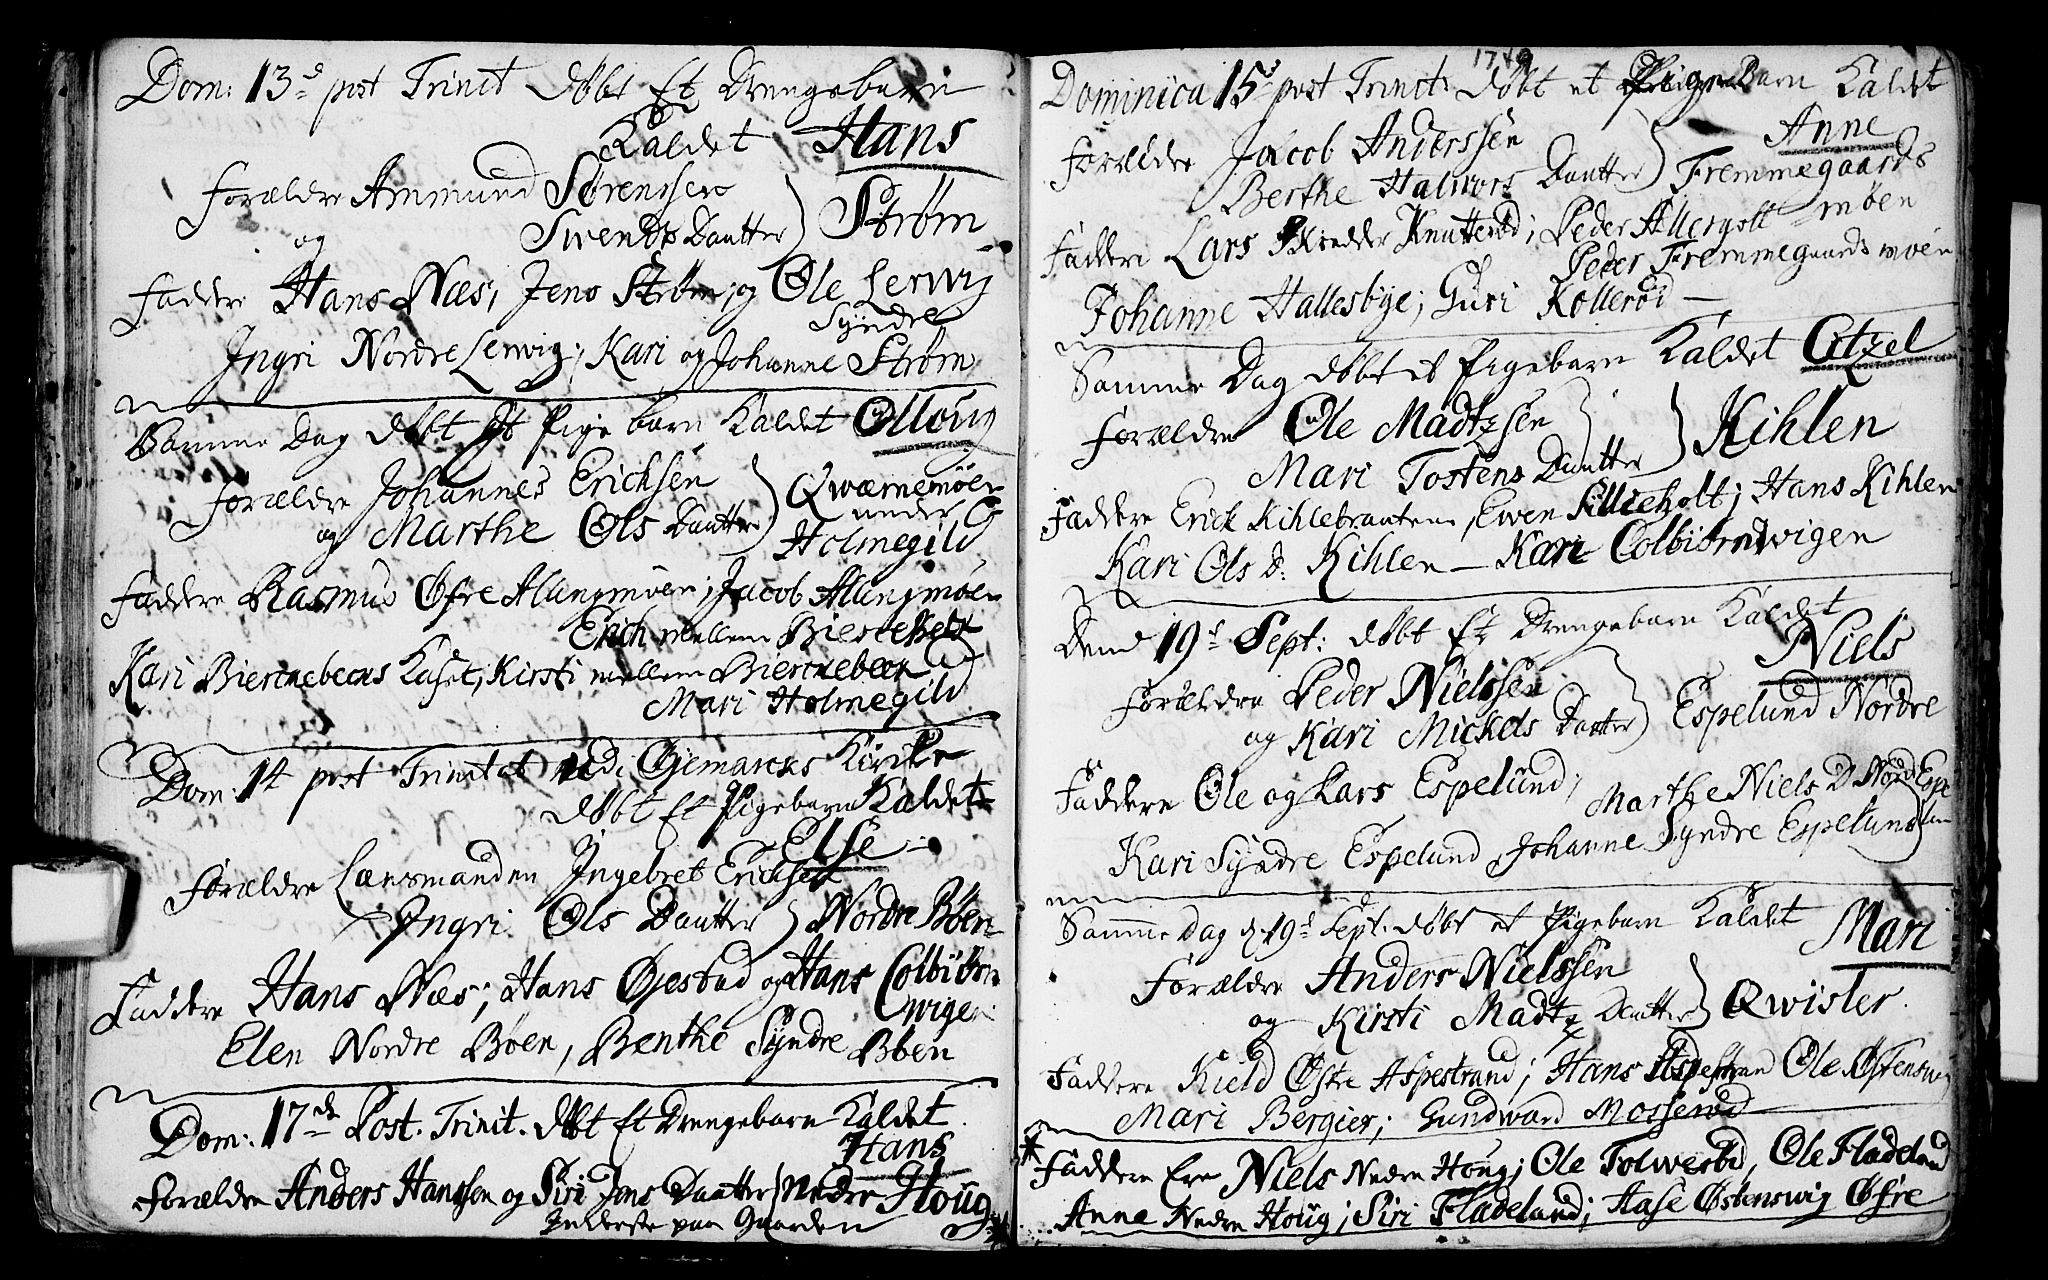 Dom: 13d post Trinit døbt Et Drengebarn
Kaldet Hans
Forældre Ammund Sørenssen
og Swends Daatter } Strøm
Faddere Hans Næs; Jens Strøm; og Ole Lerwig
Syndre
Ingri Nordre Lerwig; Kari og Johanne Strøm
Samme Dag døbt Et Pige barn Kaldet Olloug
Forældre Johannes Ericksen
og Marthe Ols Daatter } Qwærnemöen
under
Holmegild
Faddere Rasmus Øfre Allangmöen; Jacob Allangmöen
Erich mellem
Kari Kirsti mellem
Mari Holmegild
Dom: 14 post Trinitat: ved Öjemarcks Kircke
døbt Et Pigebarn Kaldet
Else
Forældre Lænsmanden Ingebret Ericksen
Ingri Ols Daatter } Nordre Böen
Faddere Hans Næs; Hans Øjestad og Hans Colbiörn
wigen
Elen Nordre Böen, Benthe Syndre Böen
Dom: 17de Post. Trinit. døbt Et Drengebarn Kaldet
Hans
Forældre Anders Hanssen og Siri Jens Daatter } Nedre Houg
Inderste paa Gaarden
1749
Dominica 15d post Trinit: døbt et Pige Barn Kaldet
Anne
Forældre Jacob Anderssen
Berthe Halwors Daatter } Fremmegaards
möen
Faddere Lars Knatteröd; Peder
Peder Fremmegaards moen
Johanne Hallesbye; Guri Kolleröd
Samme Dag døbt et Pigebarn Kaldet
Forældre Ole Madtzsen
Mari Tostens Daatter } Kihlen
Faddere Erick Kihlebraaten, Ewen Lillieholt; Hans Kihlen
Kari Ols D: Kihlen – Kari Colbiörndwigen
Dend 19d Sept: døbt Et Drengebarn Kaldet
Niels
Forældre Peder Nielssen
og Kari Mickels Daatter } Espelund Nördre
Faddere Ole og Lars Espelund;
Marthe Niels D Nord Espe
lun
Kari Syndre Espelund, Johanne Syndre Espelund
Samme Dag d. 19d Sept. døbt et Pigebarn Kaldet Mari
Forældre Anders Nielssen
og Kirsti Madtz Daatter } Qwisler.
Faddere Kield Østre Aspestrand; Hans Ole Østenswig
Mari Bergier; Gundwand Mosseröd
* Faddere Ere Niels Nedre Houg; Ole Tolwesbö, Ole Fladelund
Anne Nedre Houg; Siri Fladelund; Aase Østenswig Øfre